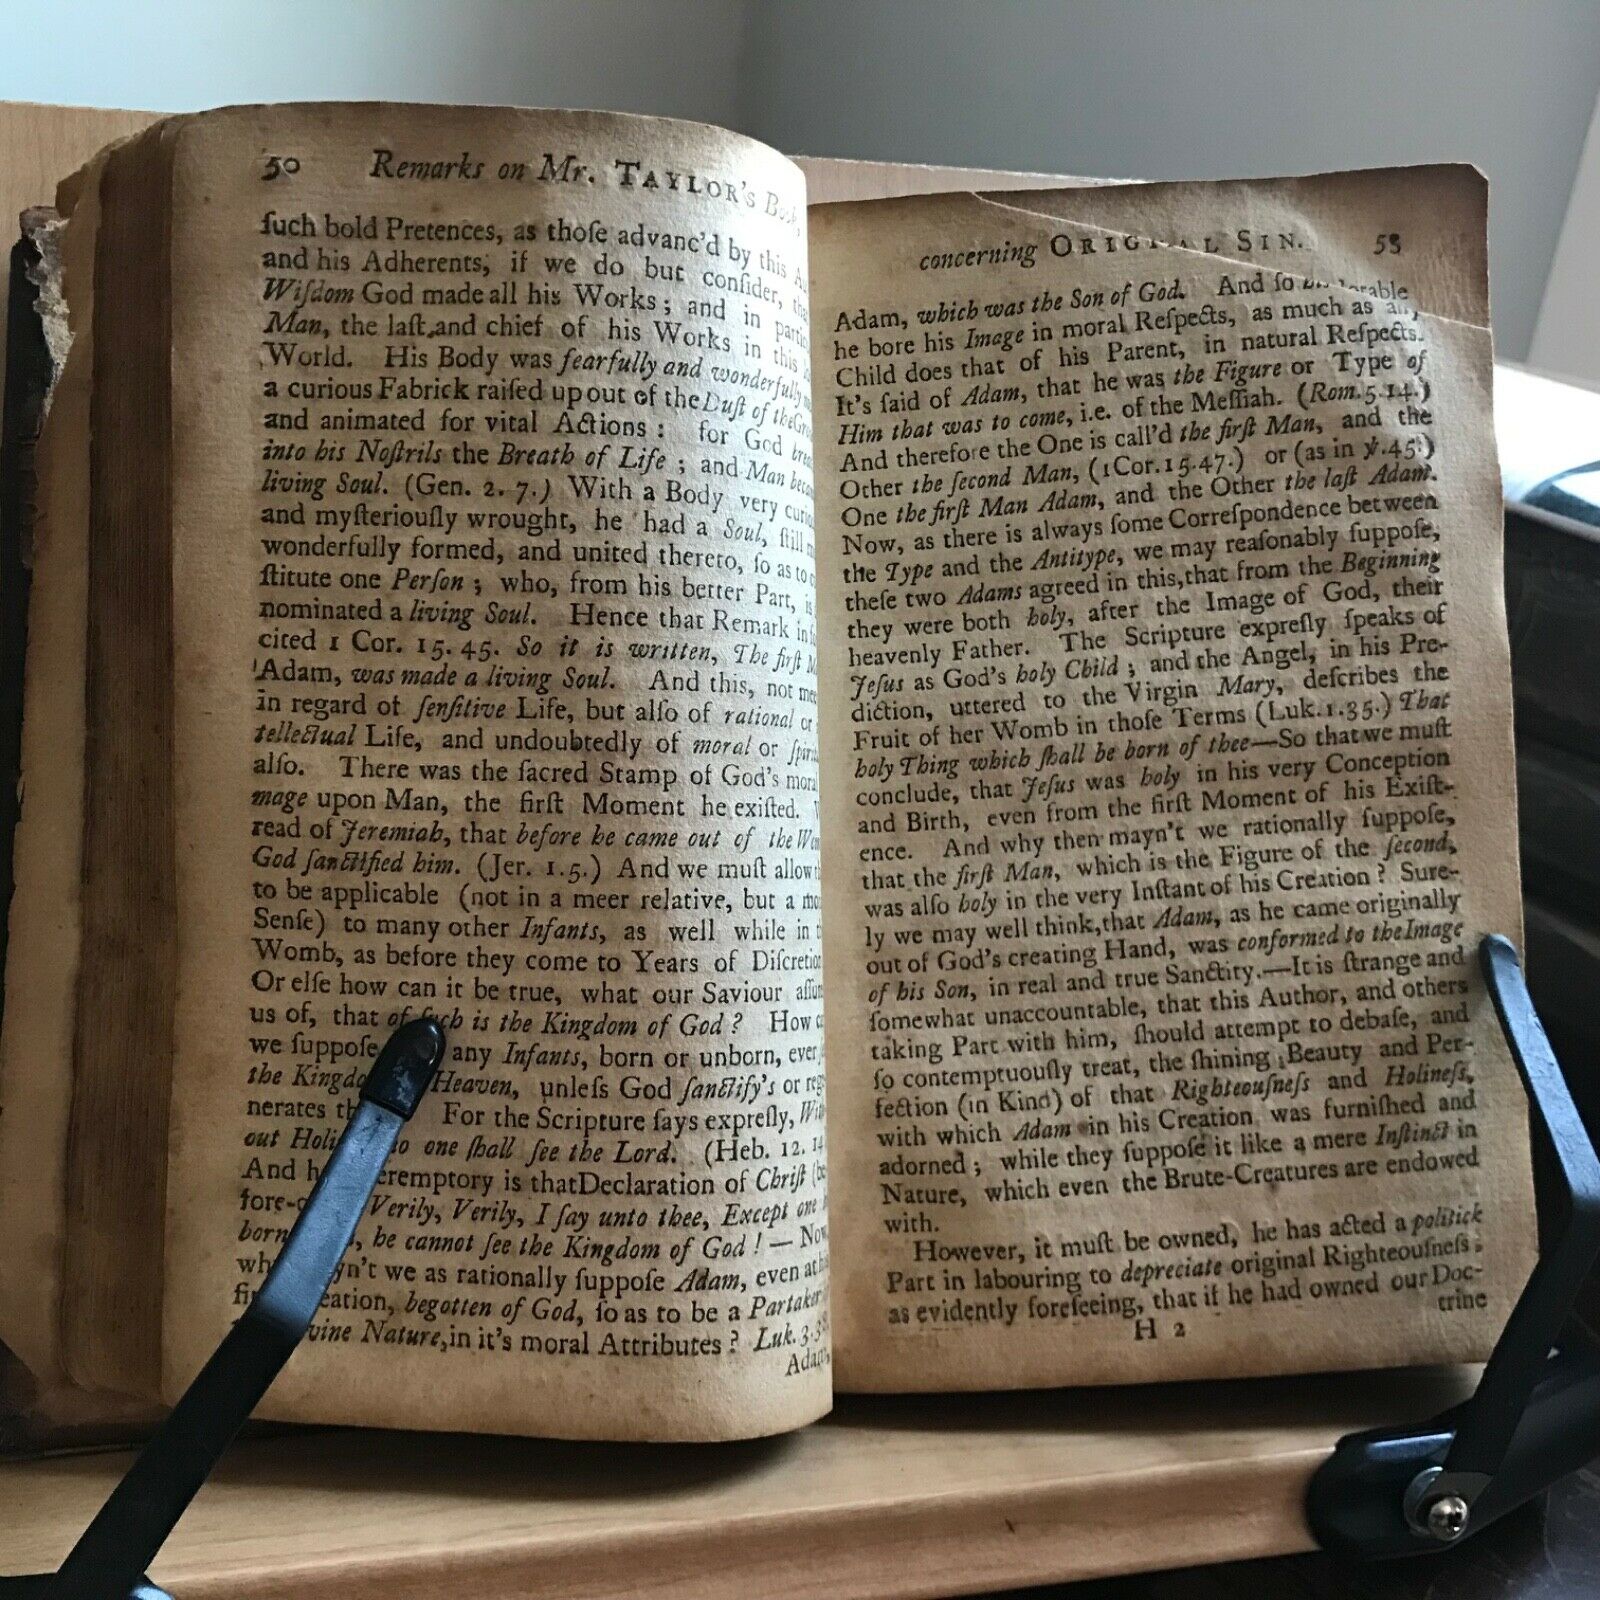 50 Remarks on Mr. TAYLOR'S Book,
ſuch bold Pretences, as thoſe advanc'd by this
and his Adherents, if we do but conſider,
Wiſdom God made all his Works; and in
Man, the laſt and chief of his Works in this
World. His Body was fearfully and wonderfully
a curious Fabrick raiſed up out of the Duſt of the
and animated for vital Actions: for God
into his Noſtrils the Breath of Life; and Man
living Soul. (Gen. 2. 7.) With a Body very
and myſteriouſly wrought, he had a Soul, ſtill
wonderfully formed, and united thereto, ſo as to
ſtitute one Perſon; who, from his better Part, is
nominated a living Soul. Hence that Remark in
cited 1 Cor. 15. 45. So it is written, The firſt
Adam, was made a living Soul. And this, not
in regard of ſenſitive Life, but alſo of rational or
tellectual Life, and undoubtedly of moral or
alſo. There was the ſacred Stamp of God's
mage upon Man, the firſt Moment he exiſted.
read of Jeremiah, that before he came out of the
God ſanctified him. (Jer. 1. 5.) And we muſt allow
to be applicable (not in a meer relative, but a
Senſe) to many other Infants, as well while in
Womb, as before they come to Years of
Or elſe how can it be true, what our Saviour
us of, that of ſuch is the Kingdom of God? How
we ſuppoſe any Infants, born or unborn,
the Heaven, unleſs God ſanctify's or
nerates For the Scripture ſays expreſly,
out no one ſhall ſee the Lord. (Heb. 12. 14
And is that Declaration of Chriſt
fore- Verily, Verily, I ſay unto thee, Except one
born he cannot ſee the Kingdom of God! — Now,
we as rationally ſuppoſe Adam, even at
begotten of God, ſo as to be a
Nature, in it's moral Attributes? Luk. 3.
Adam,
concerning ORIGINAL SIN. 53
Adam, which was the Son of God. And ſo
he bore his Image in moral Reſpects, as much as any
Child does that of his Parent, in natural Reſpects.
It's ſaid of Adam, that he was the Figure or Type of
Him that was to come, i.e. of the Meſſiah. (Rom. 5. 14.)
And therefore the One is call'd the firſt Man, and the
Other the ſecond Man, (1 Cor. 15. 47.) or (as in ℣. 45.)
One the firſt Man Adam, and the Other the laſt Adam.
Now, as there is always ſome Correſpondence between
the Type and the Antitype, we may reaſonably ſuppoſe,
theſe two Adams agreed in this, that from the Beginning
they were both holy, after the Image of God, their
heavenly Father. The Scripture expreſly ſpeaks of
Jeſus as God's holy Child; and the Angel, in his Pre-
diction, uttered to the Virgin Mary, deſcribes the
Fruit of her Womb in thoſe Terms (Luk. 1. 35.) That
holy Thing which ſhall be born of thee—So that we muſt
conclude, that Jeſus was holy in his very Conception
and Birth, even from the firſt Moment of his Exiſt-
ence. And why then mayn't we rationally ſuppoſe,
that the firſt Man, which is the Figure of the ſecond,
was alſo holy in the very Inſtant of his Creation? Sure-
ly we may well think, that Adam, as he came originally
out of God's creating Hand, was conformed to the Image
of his Son, in real and true Sanctity.—It is ſtrange and
ſomewhat unaccountable, that this Author, and others
taking Part with him, ſhould attempt to debaſe, and
ſo contemptuouſly treat, the ſhining Beauty and Per-
fection (in Kind) of that Righteouſneſs and Holineſs,
with which Adam in his Creation was furniſhed and
adorned; while they ſuppoſe it like a mere Inſtinct in
Nature, which even the Brute-Creatures are endowed
with.
However, it muſt be owned, he has acted a politick
Part in labouring to depreciate original Righteouſneſs;
as evidently foreſeeing, that if he had owned our Doc-
H 2 trine